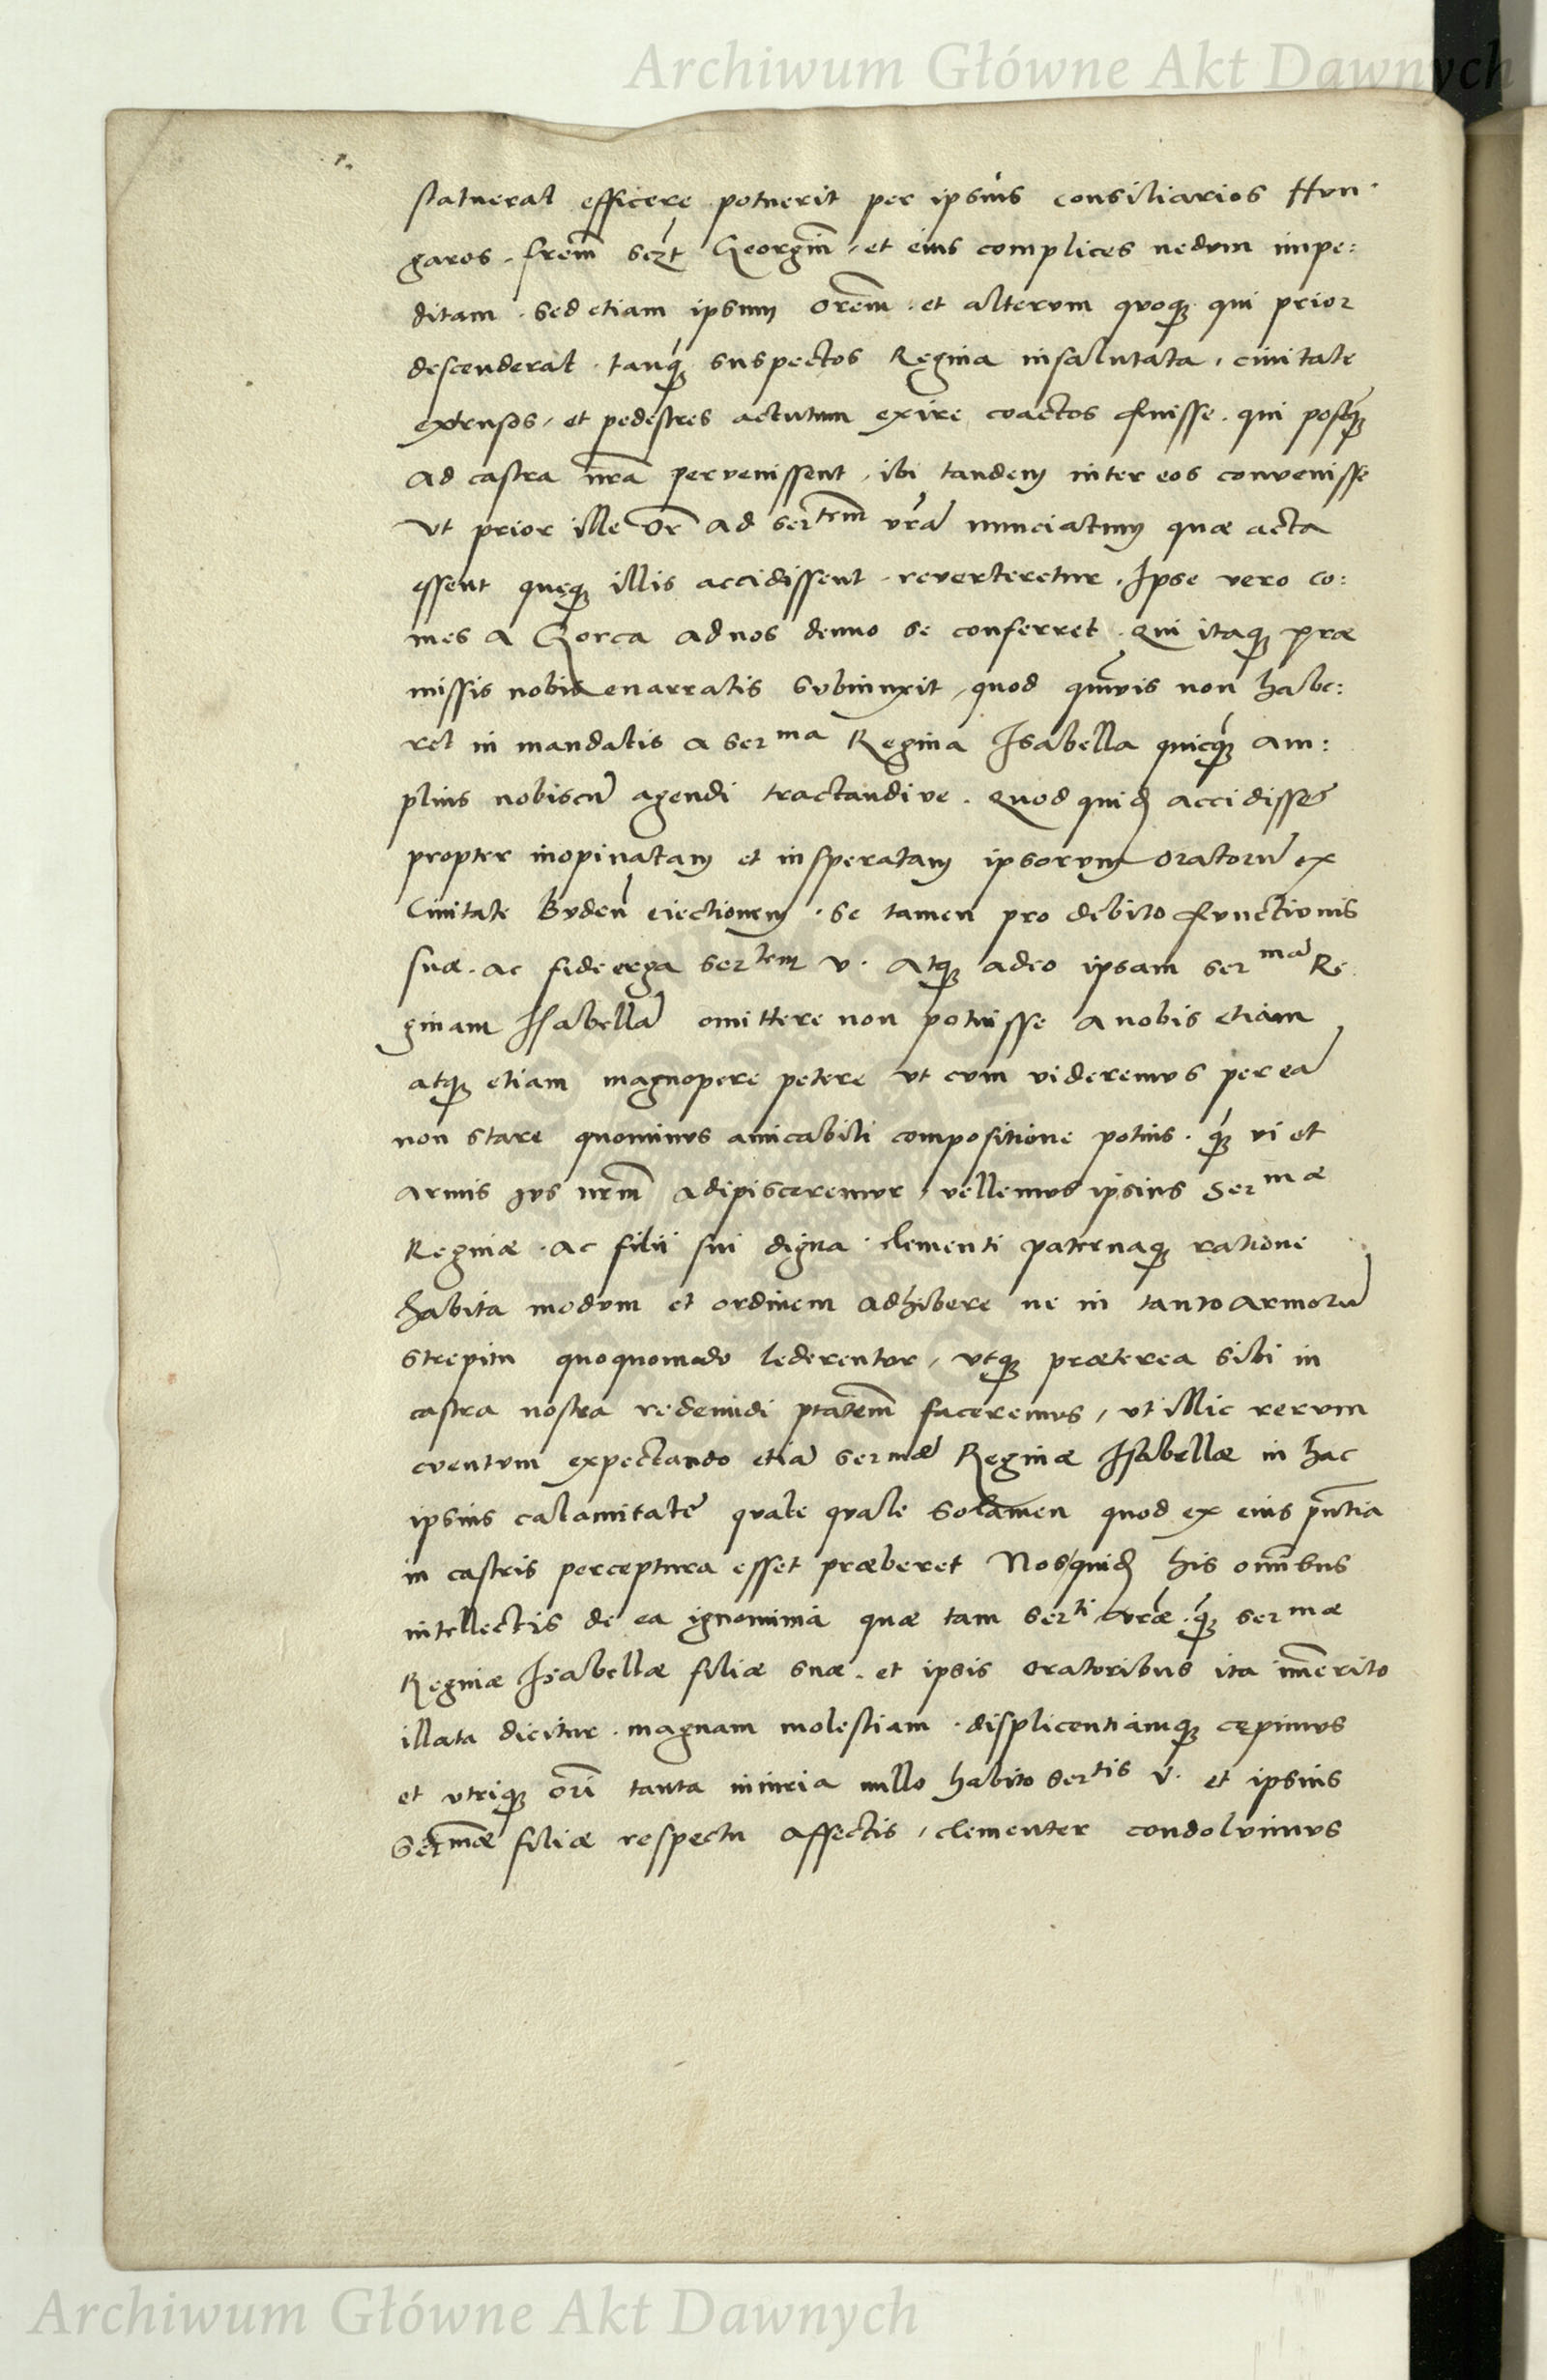 Archiwum Główne Akt Dawnych
statuerat efficere potuerit per ipsius consiliarios Hun-
garos. frẽm sczt Georgiũ, et eius complices nedum impe:
ditam. sed etiam ipsum Orẽm. et alterum quoq; qui prior
descenderat. tanq̃; suspectos Regina insalutata, ciuitate
extrusos, et pedestres actutum exire coactos fuisse. qui postq̃;
ad castra nrã peruenissent, ibi tandem inter eos conuenisse
Vt prior ille Or̃ ad Ser^tem vrã nunciatum quæ acta
essent queq; illis accidissent. reuerteretur. Ipse vero co:
mes a Gorca ad nos denuo se conferret. Qui itaq; præ
missis nobis enarratis subiunxit, quod quãuis non habe:
ret in mandatis a Ser^ma Regina Isabella quicq̃; am:
plius nobiscũ agendi tractandive. Quod quid accidisset
propter inopinatam et insperatam ipsorum oratorũ ex
Ciuitate Budeñ eiectionem. se tamen pro debito functionis
suæ. ac fide erga Ser^tem V. Atq; adeo ipsam Ser^mã Re
ginam Isabellã omittere non potuisse a nobis etiam
atq; etiam magnopere petere vt cum uideremus per eã
non stare quominus amicabili compositione potius. q̃; ui et
armis jus nrm̃ adipisceremur, vellemus ipsius Ser^mæ
Reginæ. ac filii sui digna. clementi paternaq; ratione
habita modum et ordinem adhibere ne in tanto armorũ
strepitu quoquomodo lederentur, vtq; præterea sibi in
castra nostra redeundi ptatẽm faceremus, ut illic rerum
euentum expectando etiã Ser^mæ Reginæ Isabellæ in hac
ipsius calamitatẽ quale quale solamen quod ex eius pñtia
in castris perceptura esset præberet Nos quid his omnĩbus
intellectis de ea ignominia quæ tam Ser^ti vræ. q̃; Ser^mæ
Reginæ Isabellæ filiæ suæ. et ipsis Oratoribus ita im̃erito
illata dicitur. magnam molestiam. displicentiamq; cepimus
et utriq; Orĩ tanta iniuria nullo habito Ser^tis V. et ipsius
Ser^mæ filiæ respectu affectis, clementer condoluimus
Archiwum Główne Akt Dawnych